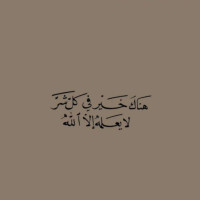 هناك خير في كل شر
لا يعلمه إلا الله